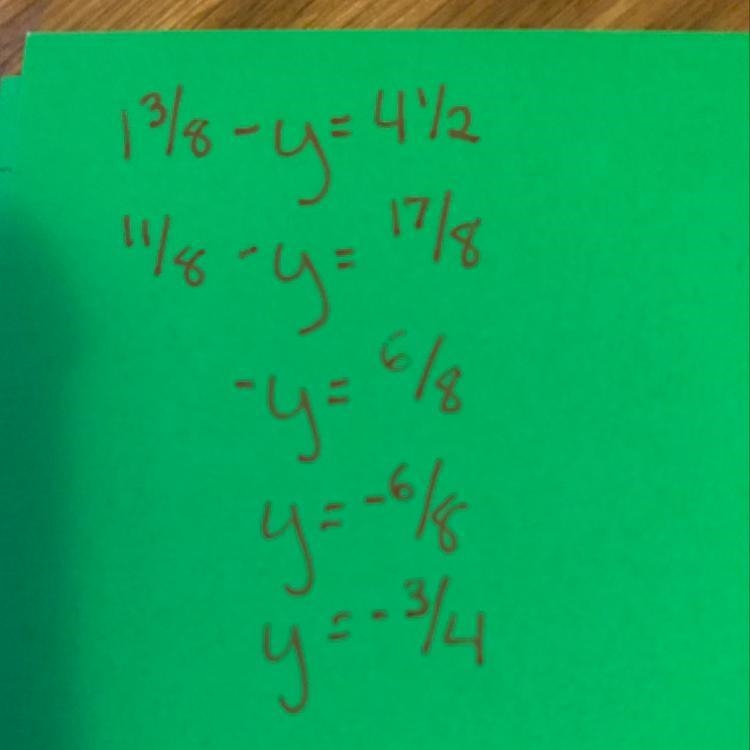 1 3/8 - y = 4 1/2
11/8 - y = 17/8
-y = 6/8
y = -6/8
y = - 3/4